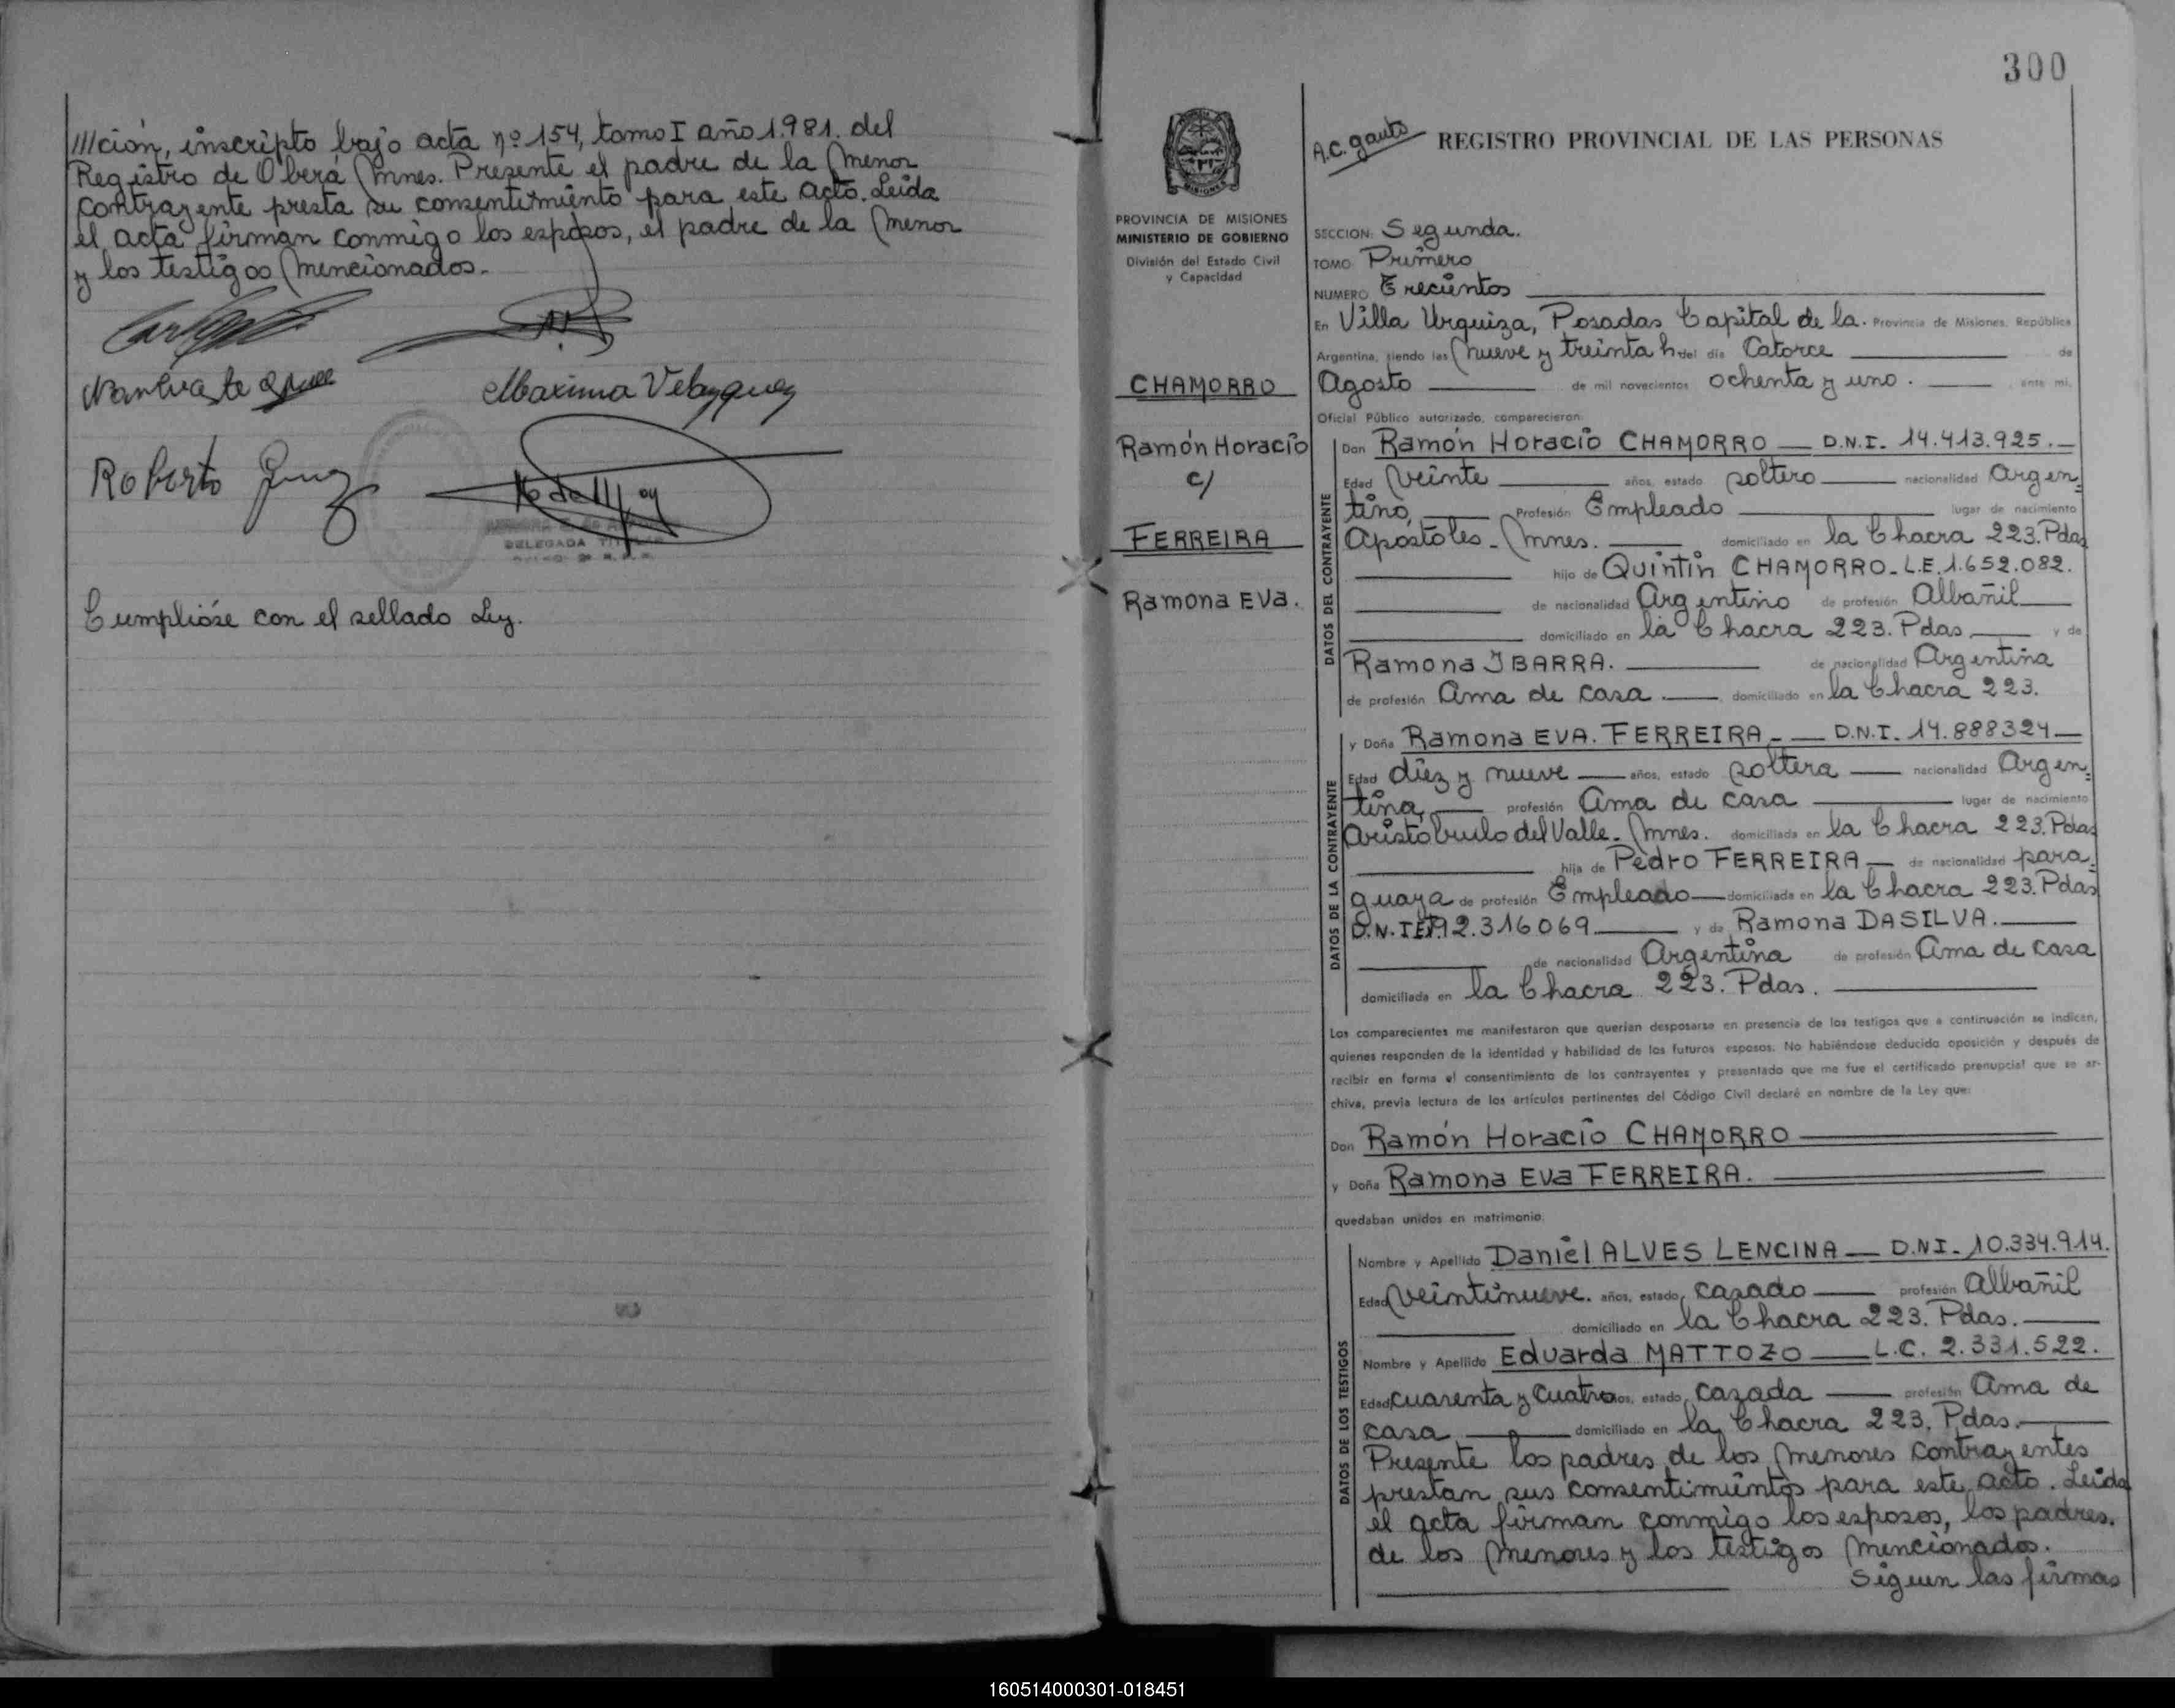 ///ción, inscripto bajo acta nº 154, tomo I año 1.981. del
Registro de Oberá Mnes. Presente el padre de la menor
contrayente presta su consentimiento para este acto. Leida
el acta firman conmigo los esposos, el padre de la menor
y los testigos mencionados.-
Maxima Velazquez
Roberto
DELEGADA TITULAR
Cumplióse con el sellado Ley.
300
PROVINCIA DE MISIONES
MINISTERIO DE GOBIERNO
División del Estado Civil
y Capacidad
CHAMORRO
Ramón Horacio
c/
FERREIRA
Ramona EVA.
A.C. gauto
REGISTRO PROVINCIAL DE LAS PERSONAS
SECCION: Segunda.
TOMO Primero
NUMERO Trecientos
En Villa Urquiza, Posadas Capital de la. Provincia de Misiones, República
Argentina, siendo las nueve y treinta h. del día Catorce de
Agosto de mil novecientos ochenta y uno. ante mi,
Oficial Público autorizado, comparecieron:
DATOS DEL CONTRAYENTE
Don Ramón Horacio CHAMORRO — D.N.I. 14.413.925.—
Edad veinte años, estado soltero nacionalidad Argen=
tino, Profesión Empleado lugar de nacimiento
Apostoles - Mnes. domiciliado en la Chacra 223. Pdas
hijo de Quintin CHAMORRO - L.E. 1.652.082.
de nacionalidad Argentino de profesión Albañil
domiciliado en la Chacra 223. Pdas y de
Ramona IBARRA. de nacionalidad Argentina
de profesión Ama de casa domiciliado en la Chacra 223.
DATOS DE LA CONTRAYENTE
y Doña Ramona EVA. FERREIRA - — D.N.I. 14.888324—
Edad diez y nueve años, estado soltera nacionalidad Argen=
tina, profesión Ama de casa lugar de nacimiento
Aristobulo del Valle - Mnes. domiciliada en la Chacra 223. Pdas
hija de Pedro FERREIRA — de nacionalidad para=
guaya de profesión Empleado — domiciliado en la Chacra 223. Pdas
92.316069 y de Ramona DASILVA.
de nacionalidad Argentina de profesión Ama de casa
domiciliada en la Chacra 223. Pdas.
Los comparecientes me manifestaron que querían desposarse en presencia de los testigos que a continuación se indican,
quienes responden de la identidad y habilidad de los futuros esposos. No habiéndose deducido oposición y después de
recibir en forma el consentimiento de los contrayentes y presentado que me fue el certificado prenupcial que se ar-
chiva, previa lectura de los artículos pertinentes del Código Civil declaré en nombre de la Ley que:
Don Ramón Horacio CHAMORRO
y Doña Ramona Eva FERREIRA.
quedaban unidos en matrimonio.
DATOS DE LOS TESTIGOS
Nombre y Apellido Daniel ALVES LENCINA — D.N.I. 10.334.914.
Edad veintinueve. años, estado, casado profesión Albañil
domiciliado en la Chacra 223. Pdas.
Nombre y Apellido Eduarda MATTOZO — L.C. 2.331.522.
Edad cuarenta y cuatro años, estado, casada profesión Ama de
casa domiciliado en la Chacra 223. Pdas.
Presente los padres de los menores contrayentes
prestan sus consentimientos para este acto. Leida
el acta firman conmigo los esposos, los padres.
de los menores y los testigos mencionados.
Siguen las firmas
160514000301-018451